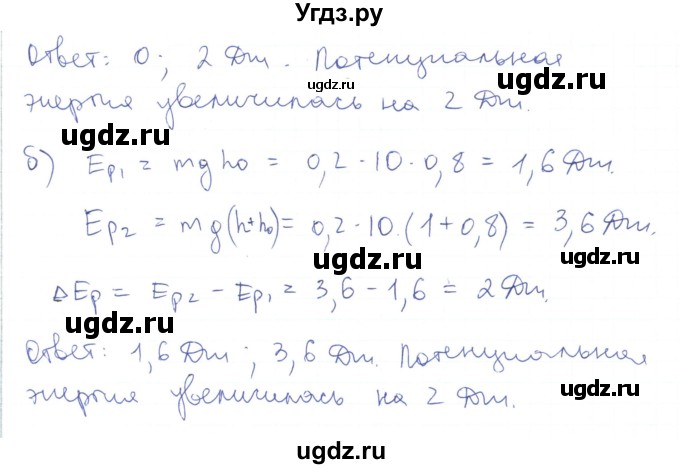 Угдз.ру
Ответ: 0; 2 Дж. Потенциальная
энергия увеличилась на 2 Дж.
ugdz.ru ugdz.ru
ugdz.ru
б) Ep₁ = mgh₀ = 0,2 · 10 · 0,8 = 1,6 Дж.
Ep₂ = mg(h+h₀) = 0,2 · 10 · (1 + 0,8) = 3,6 Дж.
ugdz.ru ugdz.ru
ΔEp = Ep₂ - Ep₁ = 3,6 - 1,6 = 2 Дж.
ugdz.ru
Ответ: 1,6 Дж; 3,6 Дж. Потенциальная
энергия увеличилась на 2 Дж.
ugdz.ru ugdz.ru
ugdz.ru